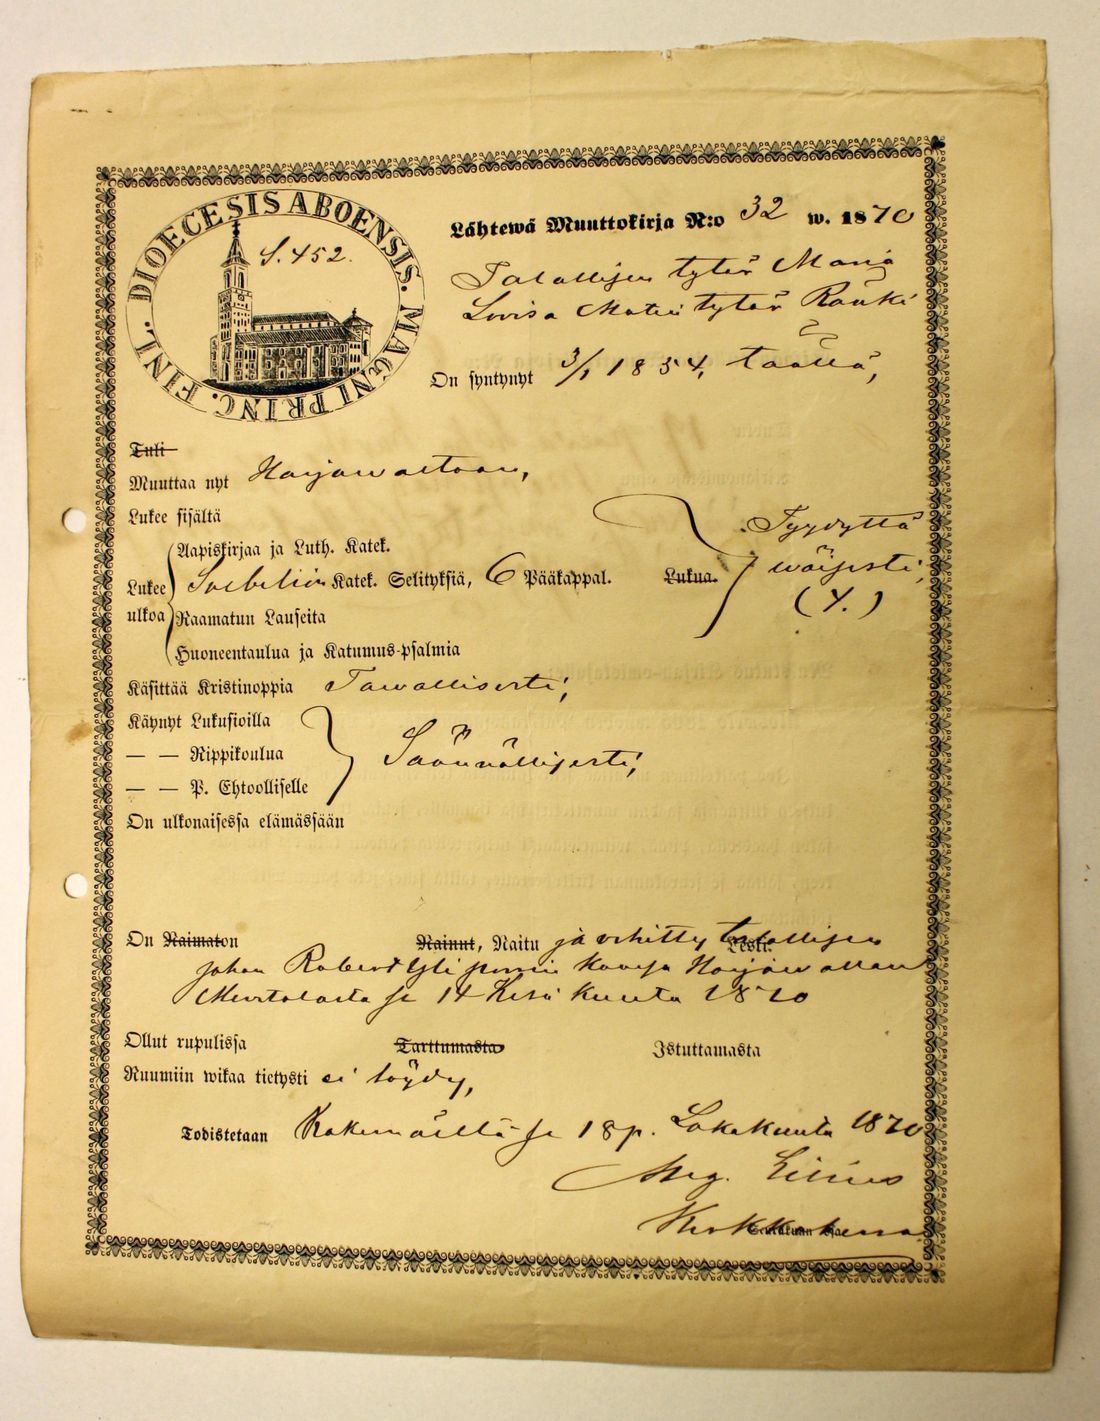 DIOECESIS ABOENSIS. MAGNI PRINC. FINL.
S. 452.
Lähtewä Muuttokirja N:o 32 w. 1870
Talollisen tytär Maria
Lovisa Matin tytär Ränki
On syntynyt 3/1 1854, täällä,
Tuli
Muuttaa nyt Harjawaltaan,
Lukee sisältä
Aapiskirjaa ja Luth. Katek.
Lukee ulkoa
Katek. Selityksiä, 6 Pääkappal. Lukua.
Raamatun Lauseita
Huoneentaulua ja Katumus-psalmia
Tyydyttä
wäisesti,
(4.)
Käsittää Kristinoppia Tawallisesti,
Käynyt Lukusioilla
— — Rippikoulua
— — P. Ehtoolliselle
Säännöllisesti,
On ulkonaisessa elämässään
On Naimaton Nainut, Naitu ja wihitty talollisen Leski.
Johan Robert kanssa Harjawallan
se 14 Kesäkuuta 1870
Ollut rupulissa Tarttumasta Istuttamasta
Ruumiin wikaa tietysti ei löydy,
Todistetaan Kokemäellä se 18 p. Lokakuuta 1870
Aug. Lilius
Kirkkoherra
Seurakunnan